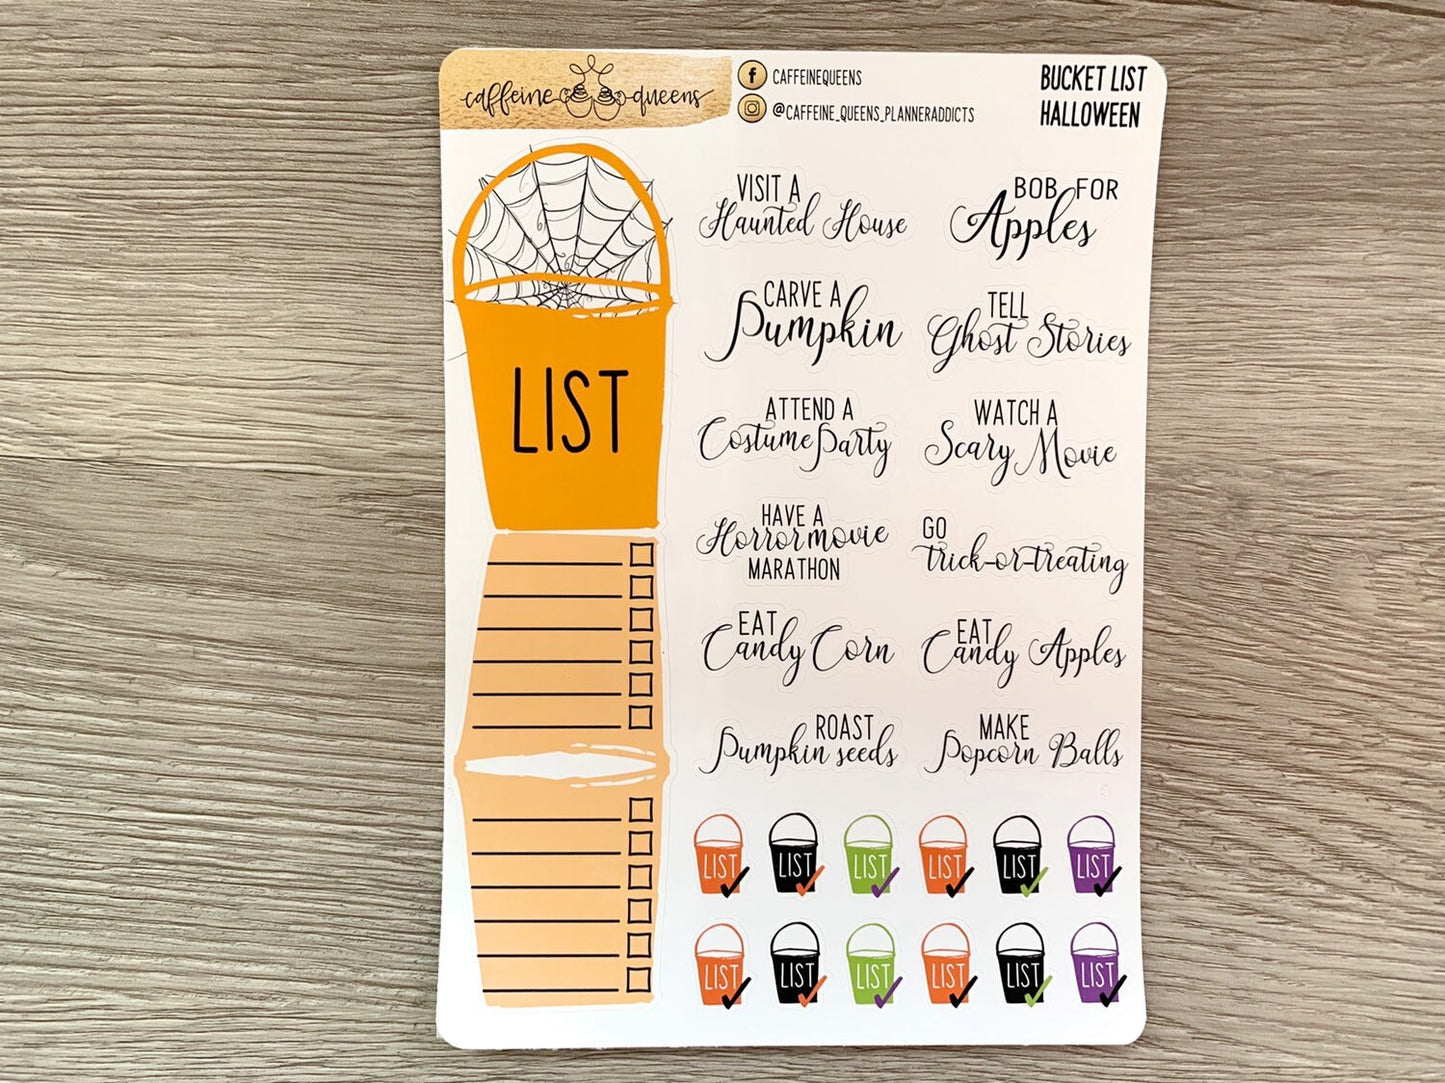 caffeine queens
CAFFEINEQUEENS
@CAFFEINE_QUEENS_PLANNERADDICTS
BUCKET LIST
HALLOWEEN
LIST
VISIT A
Haunted House
BOB FOR
Apples
CARVE A
Pumpkin
TELL
Ghost Stories
ATTEND A
Costume Party
WATCH A
Scary Movie
HAVE A
Horror movie
MARATHON
GO
trick-or-treating
EAT
Candy Corn
EAT
Candy Apples
ROAST
Pumpkin seeds
MAKE
Popcorn Balls
LIST
LIST
LIST
LIST
LIST
LIST
LIST
LIST
LIST
LIST
LIST
LIST